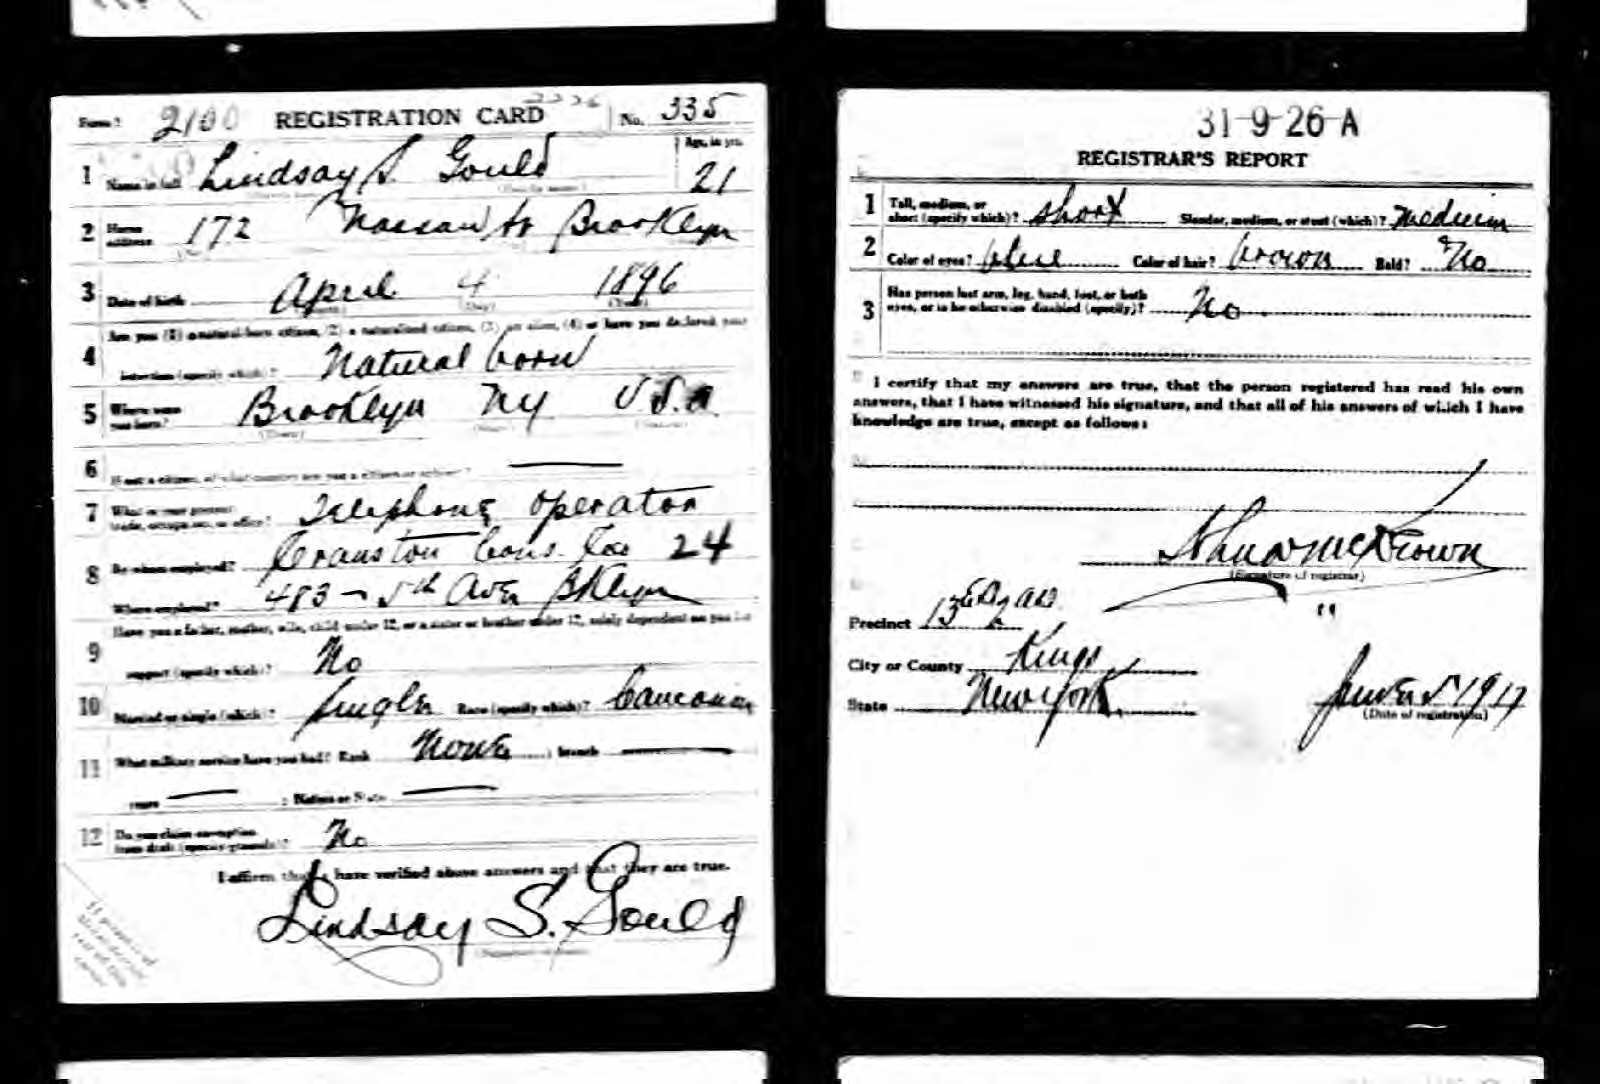 Form 1 2100 REGISTRATION CARD 2236 No. 335
1 Name in full Lindsay S. Gould Age, in yrs. 21
2 Home address 172 Nassau St Brooklyn
3 Date of birth April 4 1896
(Month) (Day) (Year)
4 Are you (1) a natural-born citizen, (2) a naturalized citizen, (3) an alien, (4) or have you declared your
intention (specify which)? Natural born
5 Where were you born? Brooklyn NY U.S.A.
(Town) (State) (Nation)
6 If not a citizen, of what country are you a citizen or subject?
7 What is your present trade, occupation, or office? Telephone operator
8 By whom employed? Cranston Cons. Co 24
Where employed? 483 - 5th Ave Bklyn
9 Have you a father, mother, wife, child under 12, or a sister or brother under 12, solely dependent on you for
support (specify which)? No
10 Married or single (which)? Single Race (specify which)? Caucasian
11 What military service have you had? Rank None ; branch
years ; Nation or State
12 Do you claim exemption from draft (specify grounds)? No
I affirm that I have verified above answers and that they are true.
Lindsay S. Gould
31-9-26-A
REGISTRAR'S REPORT
1 Tall, medium, or short (specify which)? short Slender, medium, or stout (which)? Medium
2 Color of eyes? blue Color of hair? brown Bald? No
3 Has person lost arm, leg, hand, foot, or both
eyes, or is he otherwise disabled (specify)? No
I certify that my answers are true, that the person registered has read his own
answers, that I have witnessed his signature, and that all of his answers of which I have
knowledge are true, except as follows:
(Signature of registrar)
Precinct 13
City or County Kings
State New York
June 5 1917
(Date of registration)